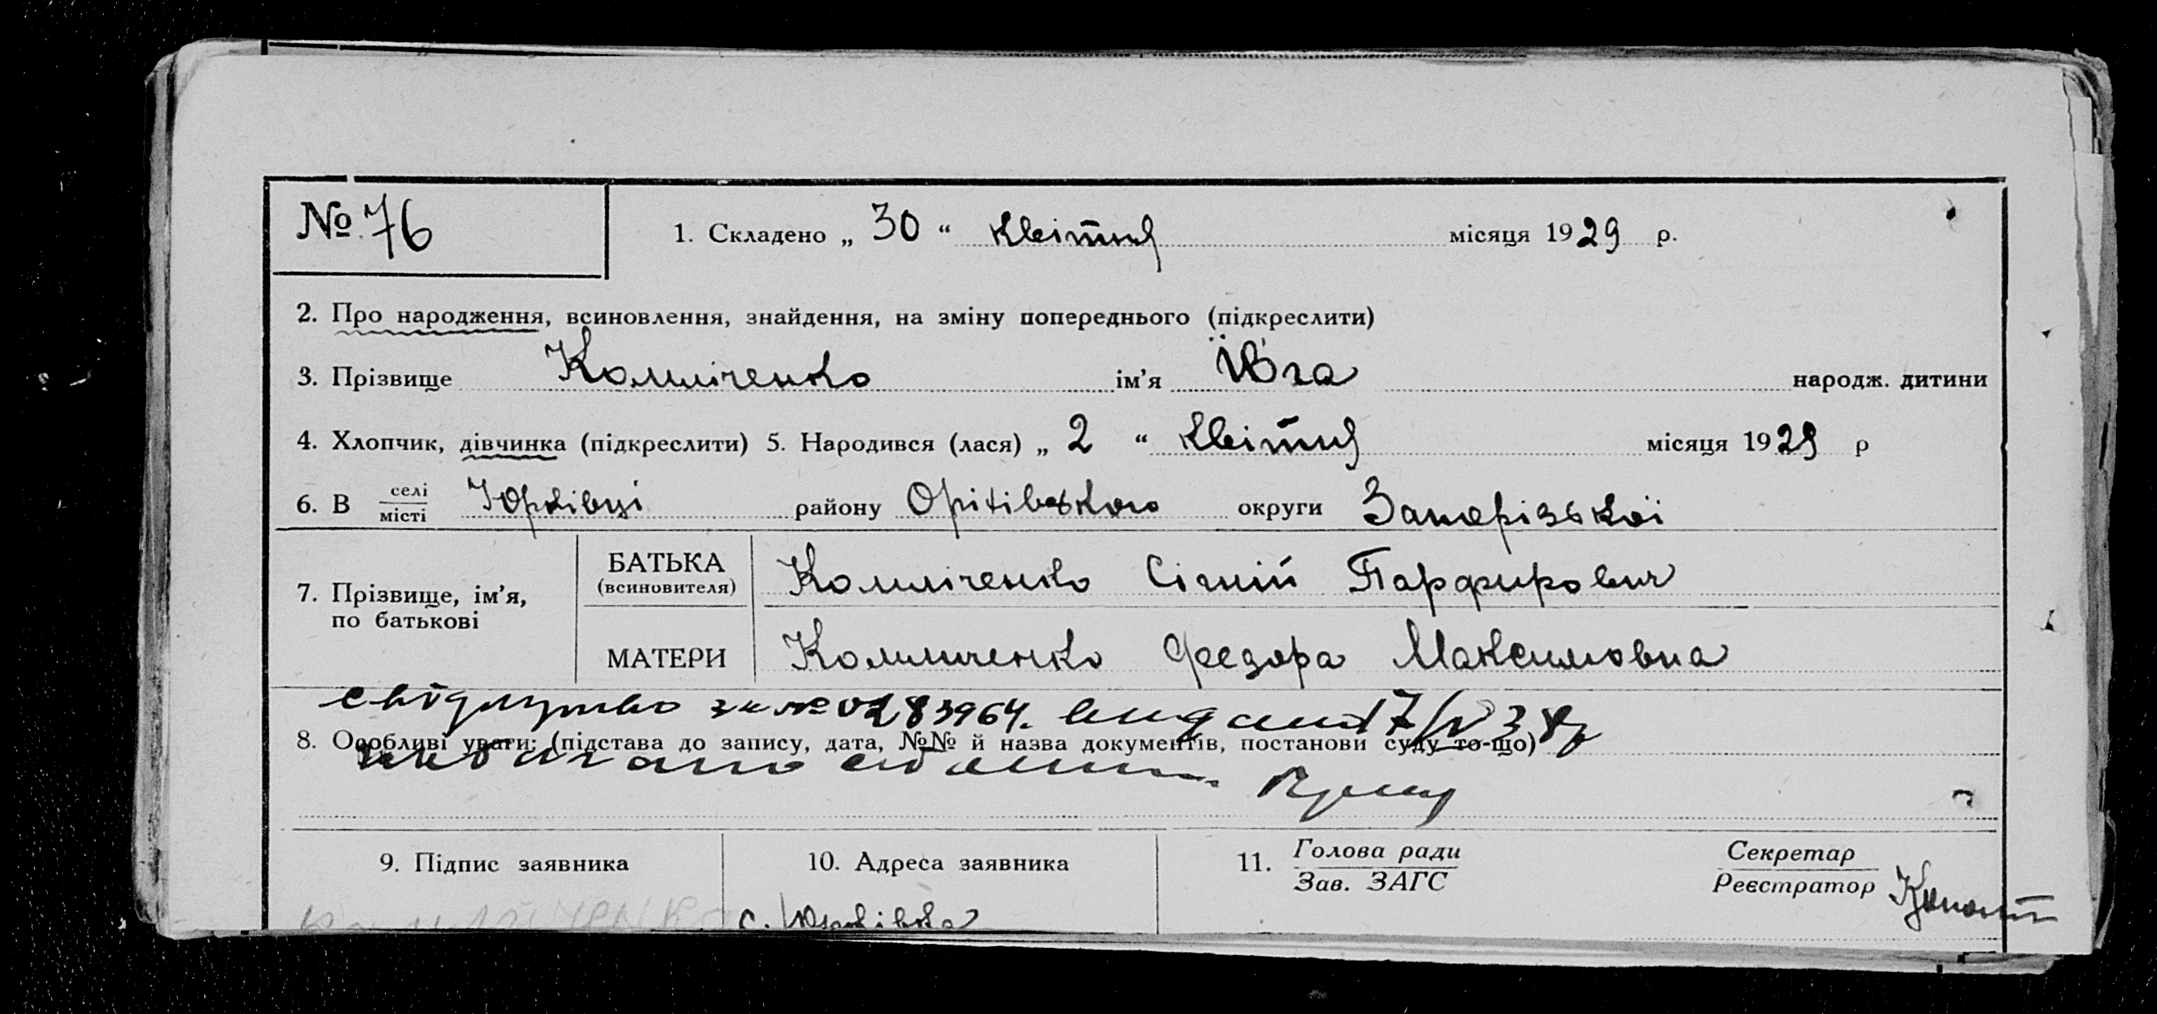 № 76
1. Складено „ 30 “ квітня місяця 1929 р.
2. Про народження, всиновлення, знайдення, на зміну попереднього (підкреслити)
3. Прізвище Комліченко ім’я Ївга народж. дитини
4. Хлопчик, дівчинка (підкреслити) 5. Народився (лася) „ 2 “ квітня місяця 1929 р
6. В селі місті Юрківці району Оріхівського округи Запорізької
7. Прізвище, ім’я, по батькові
БАТЬКА (всиновителя) Комліченко Сігній Парфирович
МАТЕРИ Комличенко Феодора Максимовна
свідоцтво за № 0283964. видано 17/IV 38р
8. Особливі уваги: (підстава до запису, дата, №№ й назва документів, постанови суду то-що)
9. Підпис заявника
10. Адреса заявника
11. Голова ради Зав. ЗАГС
Секретар Реєстратор
с. Юрківка